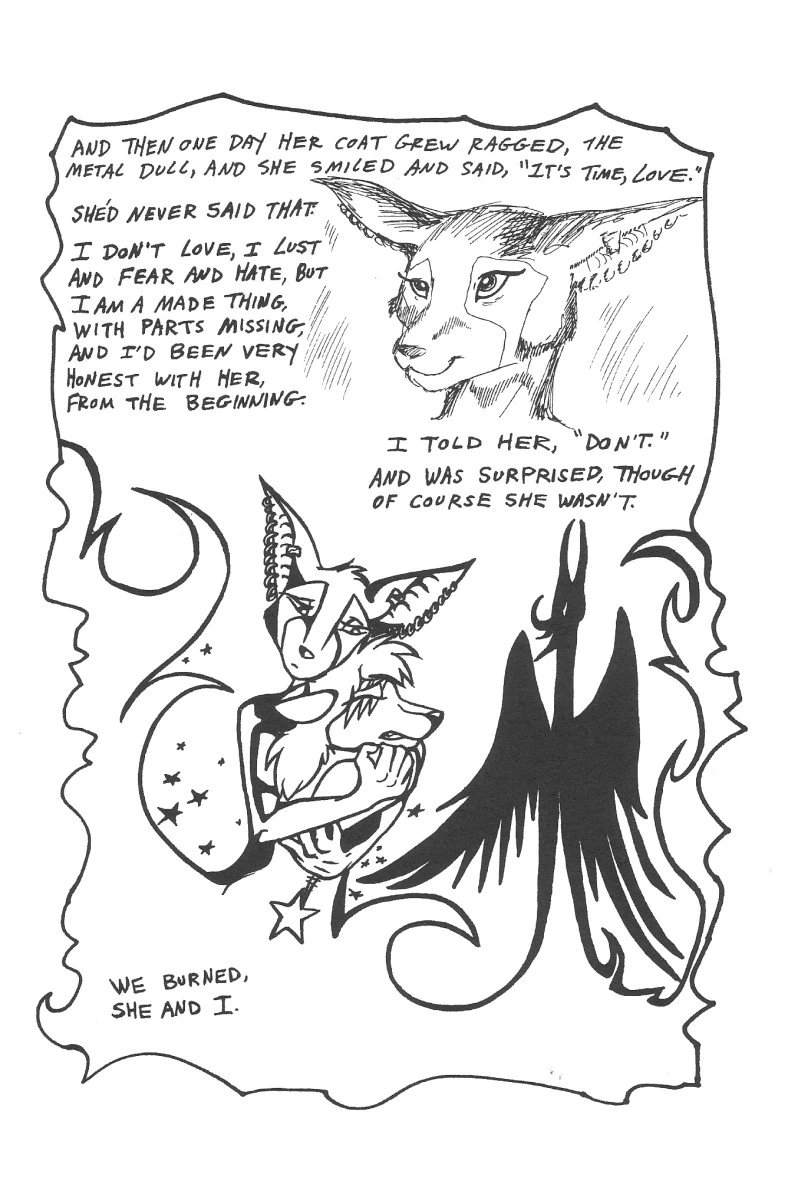 AND THEN ONE DAY HER COAT GREW RAGGED, THE
METAL DULL, AND SHE SMILED AND SAID, "IT'S TIME, LOVE."
SHE'D NEVER SAID THAT.
I DON'T LOVE, I LUST
AND FEAR AND HATE, BUT
I AM A MADE THING,
WITH PARTS MISSING,
AND I'D BEEN VERY
HONEST WITH HER,
FROM THE BEGINNING.
I TOLD HER, "DON'T."
AND WAS SURPRISED, THOUGH
OF COURSE SHE WASN'T.
WE BURNED,
SHE AND I.